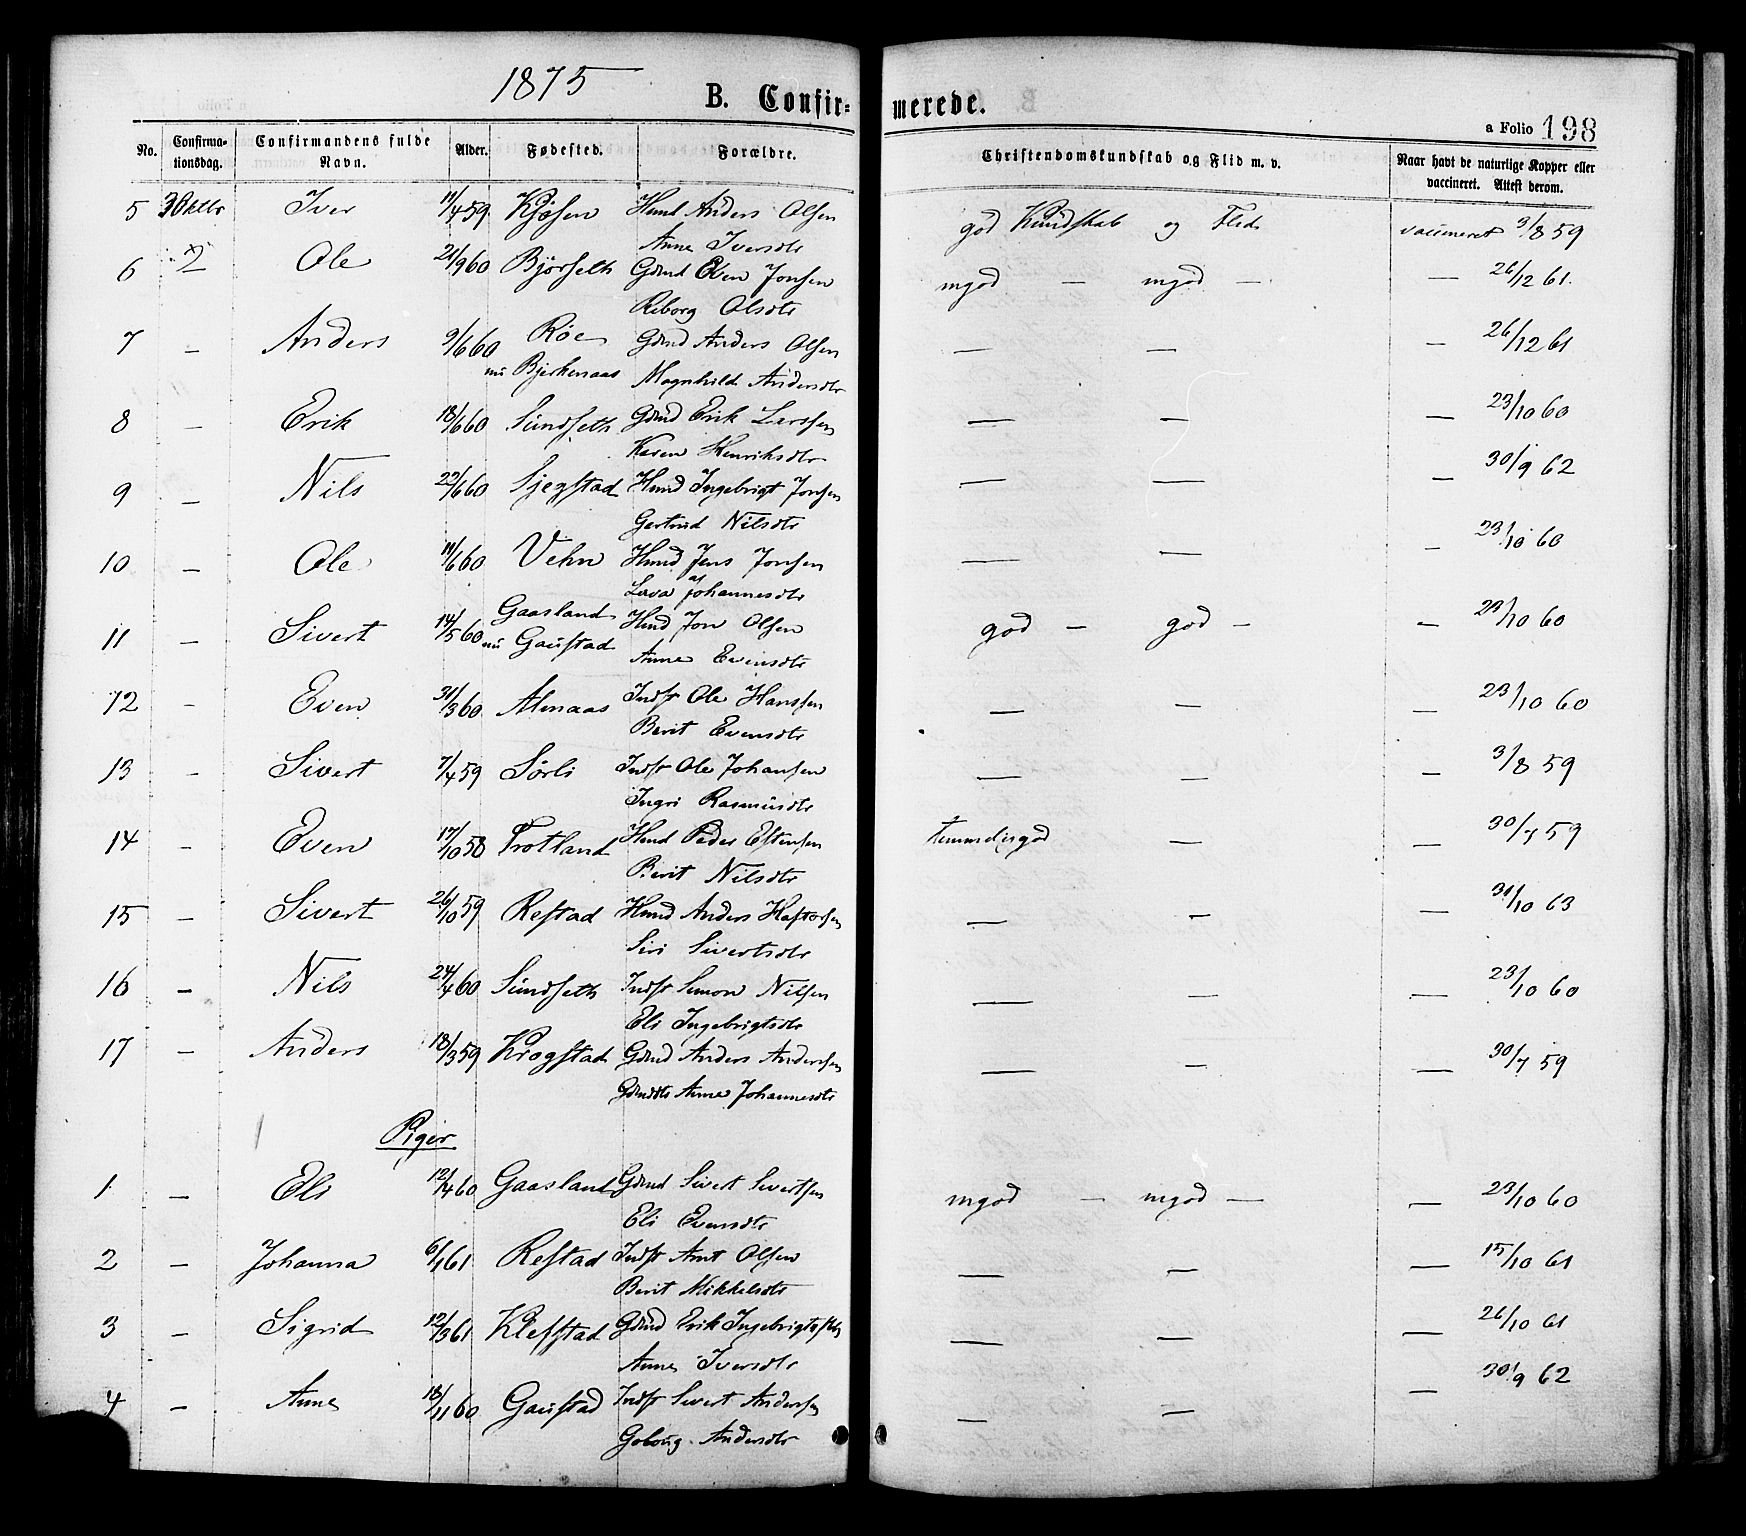 1875
B. Confir-
merede.
a Folio 198
No. Confirma-tionsdag. Confirmandens fulde Navn. Alder. Fødested. Forældre. Christendomskundskab og Flid m. v. Naar havt de naturlige Kopper eller vaccineret. Attest derom.
5 3 Oktbr Iver 11/4 59 Kjøsen Hmd Anders Olsen god Kundskab og Flid vaccineret 3/8 59
Anne Iversdtr
6 Ole 21/9 60 Bjørseth Gdmd Even Jonsen mgod — mgod — — 26/12 61.
Reborg Olsdtr
7 — Anders 9/6 60 Røe Gdmd Anders Olsen — — — 26/12 61
nu Bjerkenaas Magnhild Andersdtr
8 — Erik 18/6 60 Sundseth Gdmd Erik Larssen — — — 23/10 60
Karen Henriksdtr
9 — Nils 22/6 60 Sjegstad Hmd Ingebrigt Jonsen — — — 30/9 62
Gertrud Nilsdtr
10 — Ole 11/6 60 Vehn Hmd Jens Jonsen — — — 23/10 60
Lava Johannesdtr
11 — Sivert 14/5 60 Gaasland Hmd Jon Olsen god — god — — 23/10 60
nu Gaustad Anne Evensdtr
12 — Even 31/3 60 Almaas Indst Ole Hanssen — — — 23/10 60
Berit Evensdtr
13 — Sivert 7/4 59 Sørli Indst Ole Johansen — — — 3/8 59
Ingri Rasmusdtr
14 — Even 17/10 58 Trotland Hmd Peder Estensen temmeligod — — 30/7 59
Berit Nilsdtr
15 — Sivert 26/10 59 Restad Hmd Anders Haftorsen — — — 31/10 63
Siri Sivertsdtr
16 — Nils 24/4 60 Sundseth Indst Simon Nilsen — — — 23/10 60
Eli Ingebrigtsdtr
17 — Anders 18/3 59 Krogstad Gdmd Anders Anderssen — — — 30/7 59
Gdmdtr Anne Johannesdtr
Piger
1 — Eli 12/4 60 Gaasland Gdmd Sivert Sivertsen mgod — mgod — — 23/10 60
Eli Evensdtr
2 — Johanna 6/1 61 Restad Indst Arnt Olsen — — — 15/10 61
Berit Mikkelsdtr
3 — Sigrid 12/3 61 Klefstad Gdmd Erik Ingebrigtsen — — — 26/10 61
Anne Iversdtr
4 — Anne 18/11 60 Gaustad Indst Sivert Anderssen — — — 30/9 62
Goborg Andersdtr